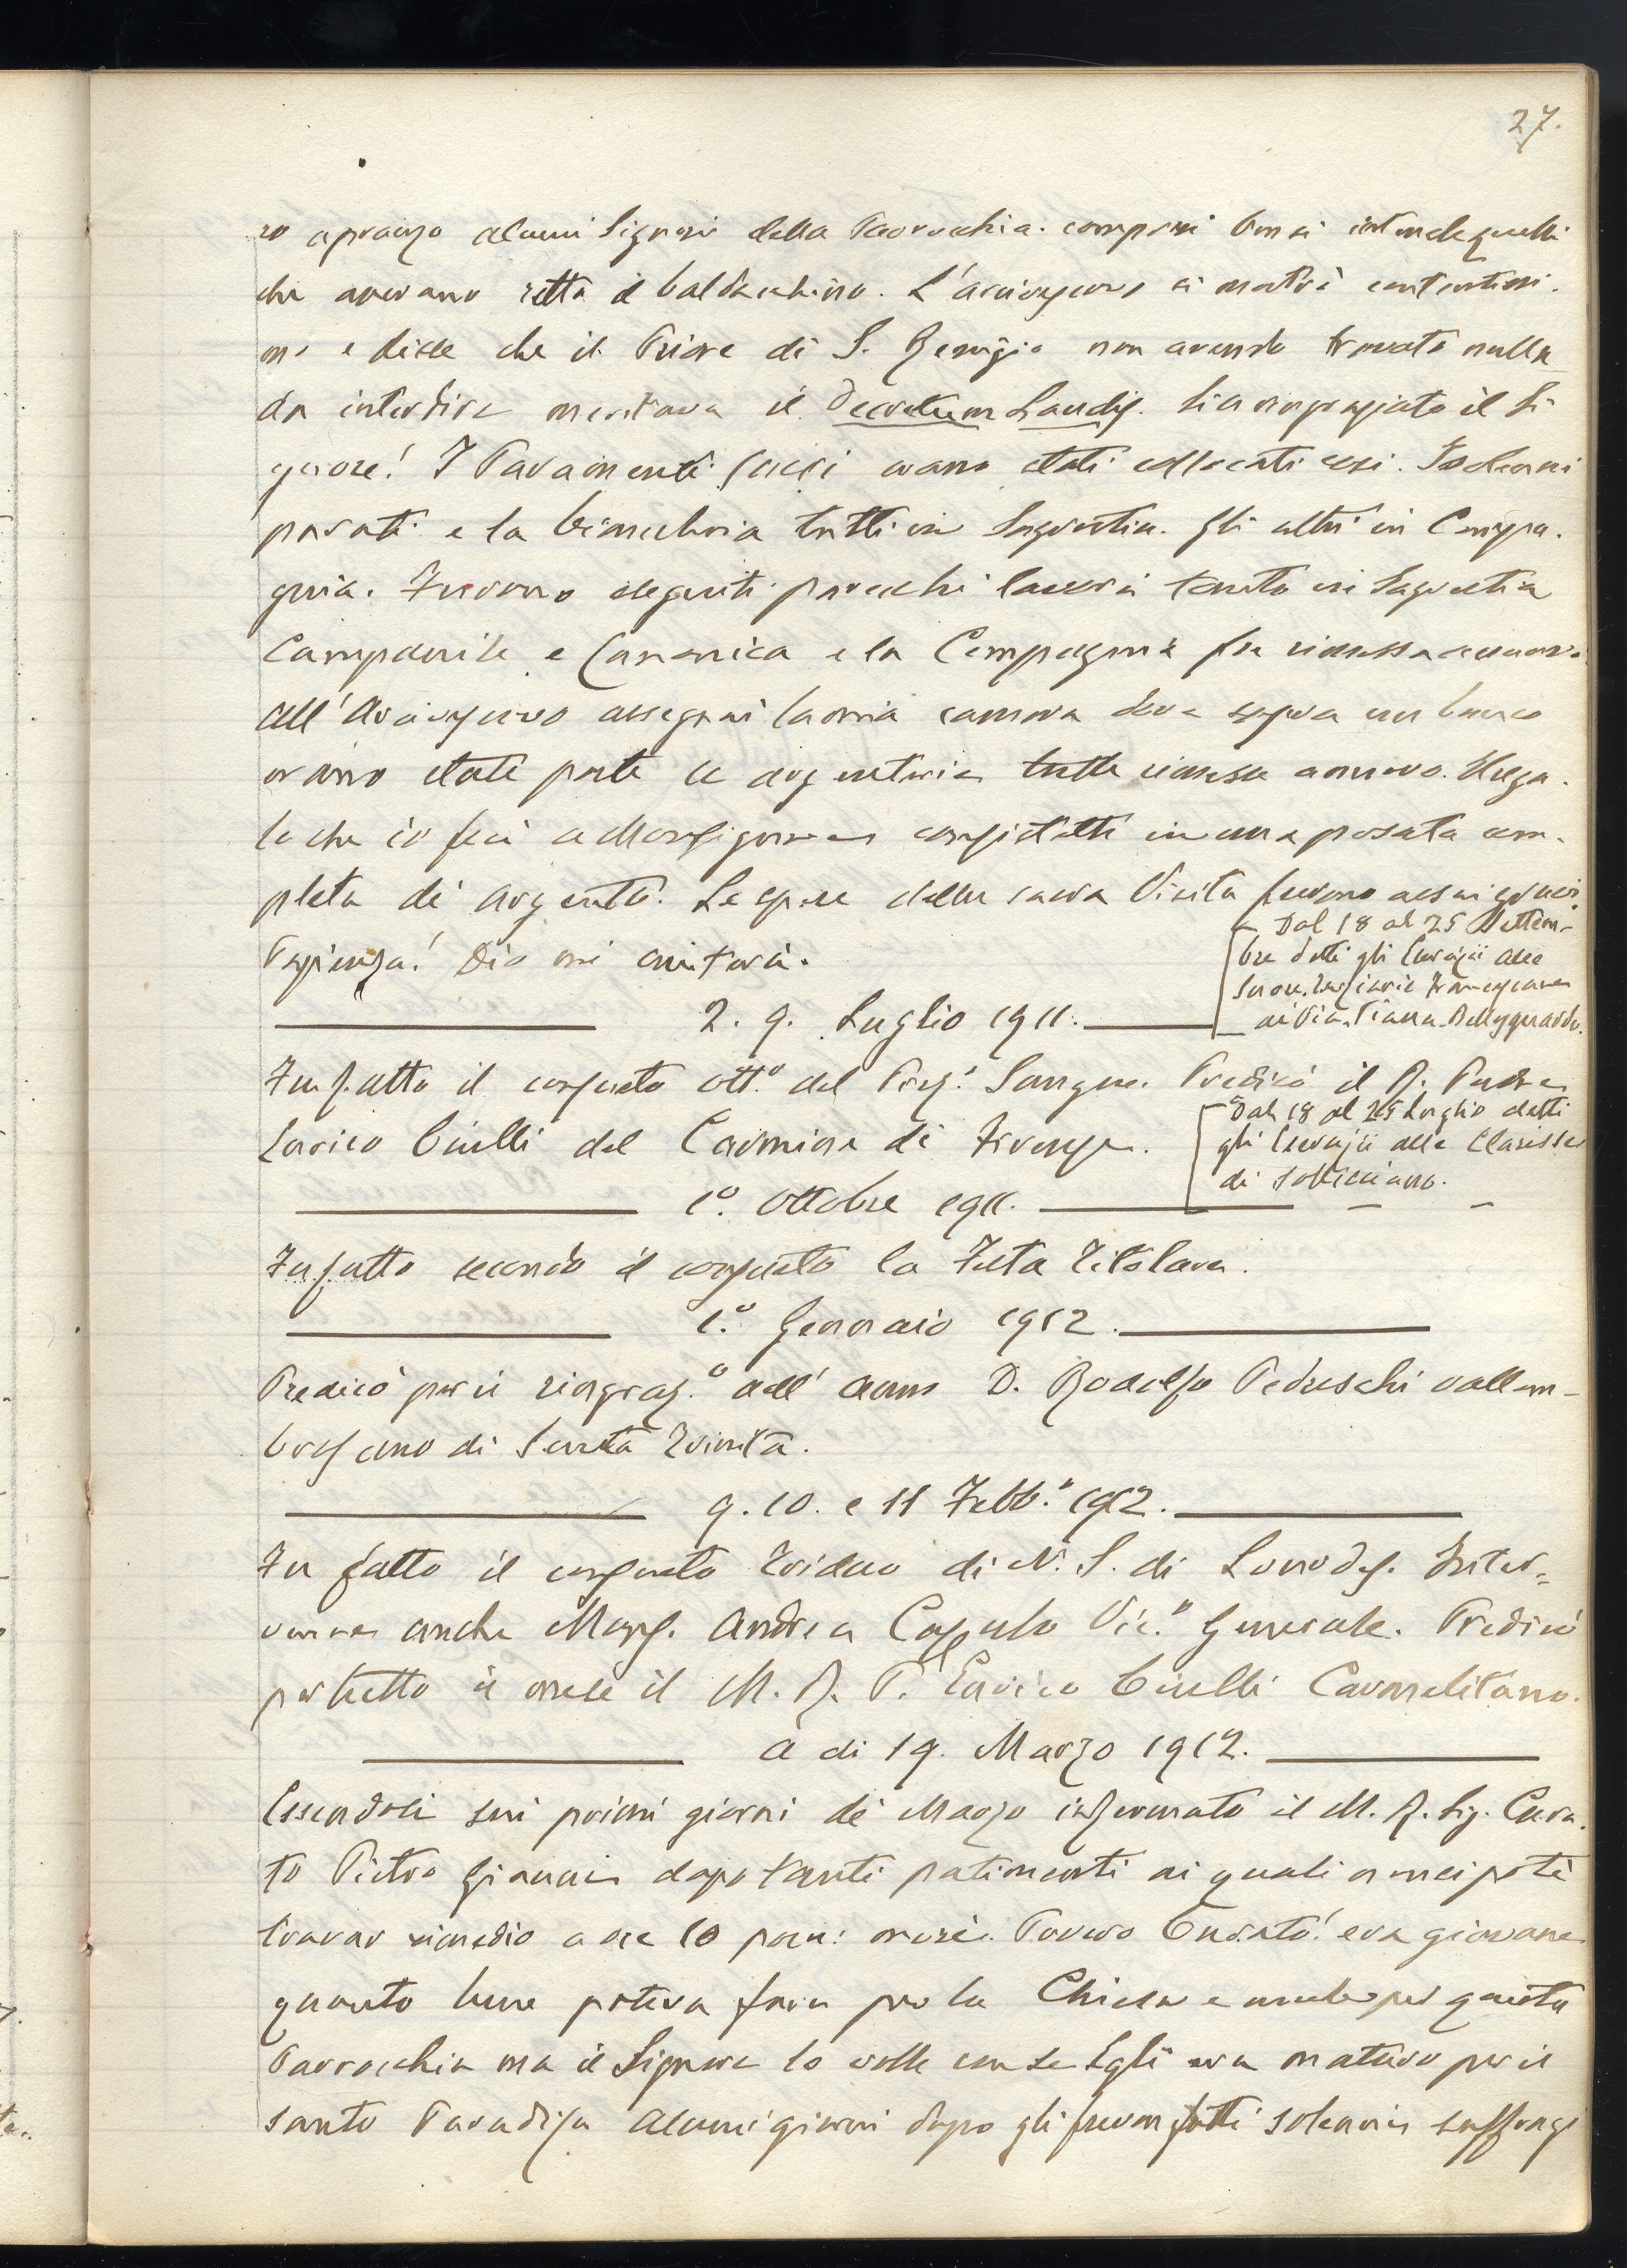 27.
ro a pranzo alcuni Signori della Parrocchia compresi bensì intende quelli
che avevano retto il baldacchino. L'Arcivescovo si mostrò contentissi-
mo e disse che il Priore di S. Remigio non avendo trovato nulla
da interdire meritava il Decretum Laudis. Sia ringraziato il Si
gnore! I Paramenti Sacri erano stati collocati così. I solenni
parati e la biancheria tutti in Sagrestia. Gli altri in Compa-
gnia. Furono eseguiti parecchi lavori tanto in Sagrestia
Campanile e Canonica e la Compagnia fu rimessa a nuovo.
All'Arcivescovo assegnai la mia camera dove sopra un banco
erano state poste le argenterie tutte rimesse a nuovo. Il rega-
lo che io feci a Monsignore consistette in una posata com-
pleta di argento. Le spese della sacra Visita furono assai
Pazienza! Dio mi aiuterà.
Dal 18 al 25 Settem-
bre detti gli Esercizii alle
Suore Terziarie Francescane
di Via Piana Bellosguardo.
2. 9. Luglio 1911.
Fu fatto il consueto Ott.o del Prez.o Sangue. Predicò il R. Padre
Enrico Ciulli del Carmine di Firenze.
Dal 18 al 25 Luglio detti
gli Esercizii alle Clarisse
di Sollicciano.
1.o Ottobre 1911.
Fu fatto secondo il consueto la Festa Titolare.
1.o Gennaio 1912.
Predicò per il ringraz.o dell'anno D. Rodolfo Pedreschi vallom-
brosano di Santa Trinita.
9. 10. e 11 Febb.o 1912.
Fu fatto il consueto Triduo di N. S. di Lourdes. Inter-
venne anche Mons. Andrea Cassulo Vic.o Generale. Predicò
per tutto il mese il M. R. P. Enrico Ciulli Carmelitano.
A di 19. Marzo 1912.
Essendosi sui primi giorni di Marzo infermato il M. R. Sig. Cura-
to Pietro Giannini dopo tanti patimenti ai quali non ci potè
trovar rimedio a ore 10 pom: morì. Povero Curato! era giovane
quanto bene poteva fare per la Chiesa e anche per questa
Parrocchia ma il Signore lo volle con se Egli era maturo per il
santo Paradiso Alcuni giorni dopo gli furon fatti solenni suffragi